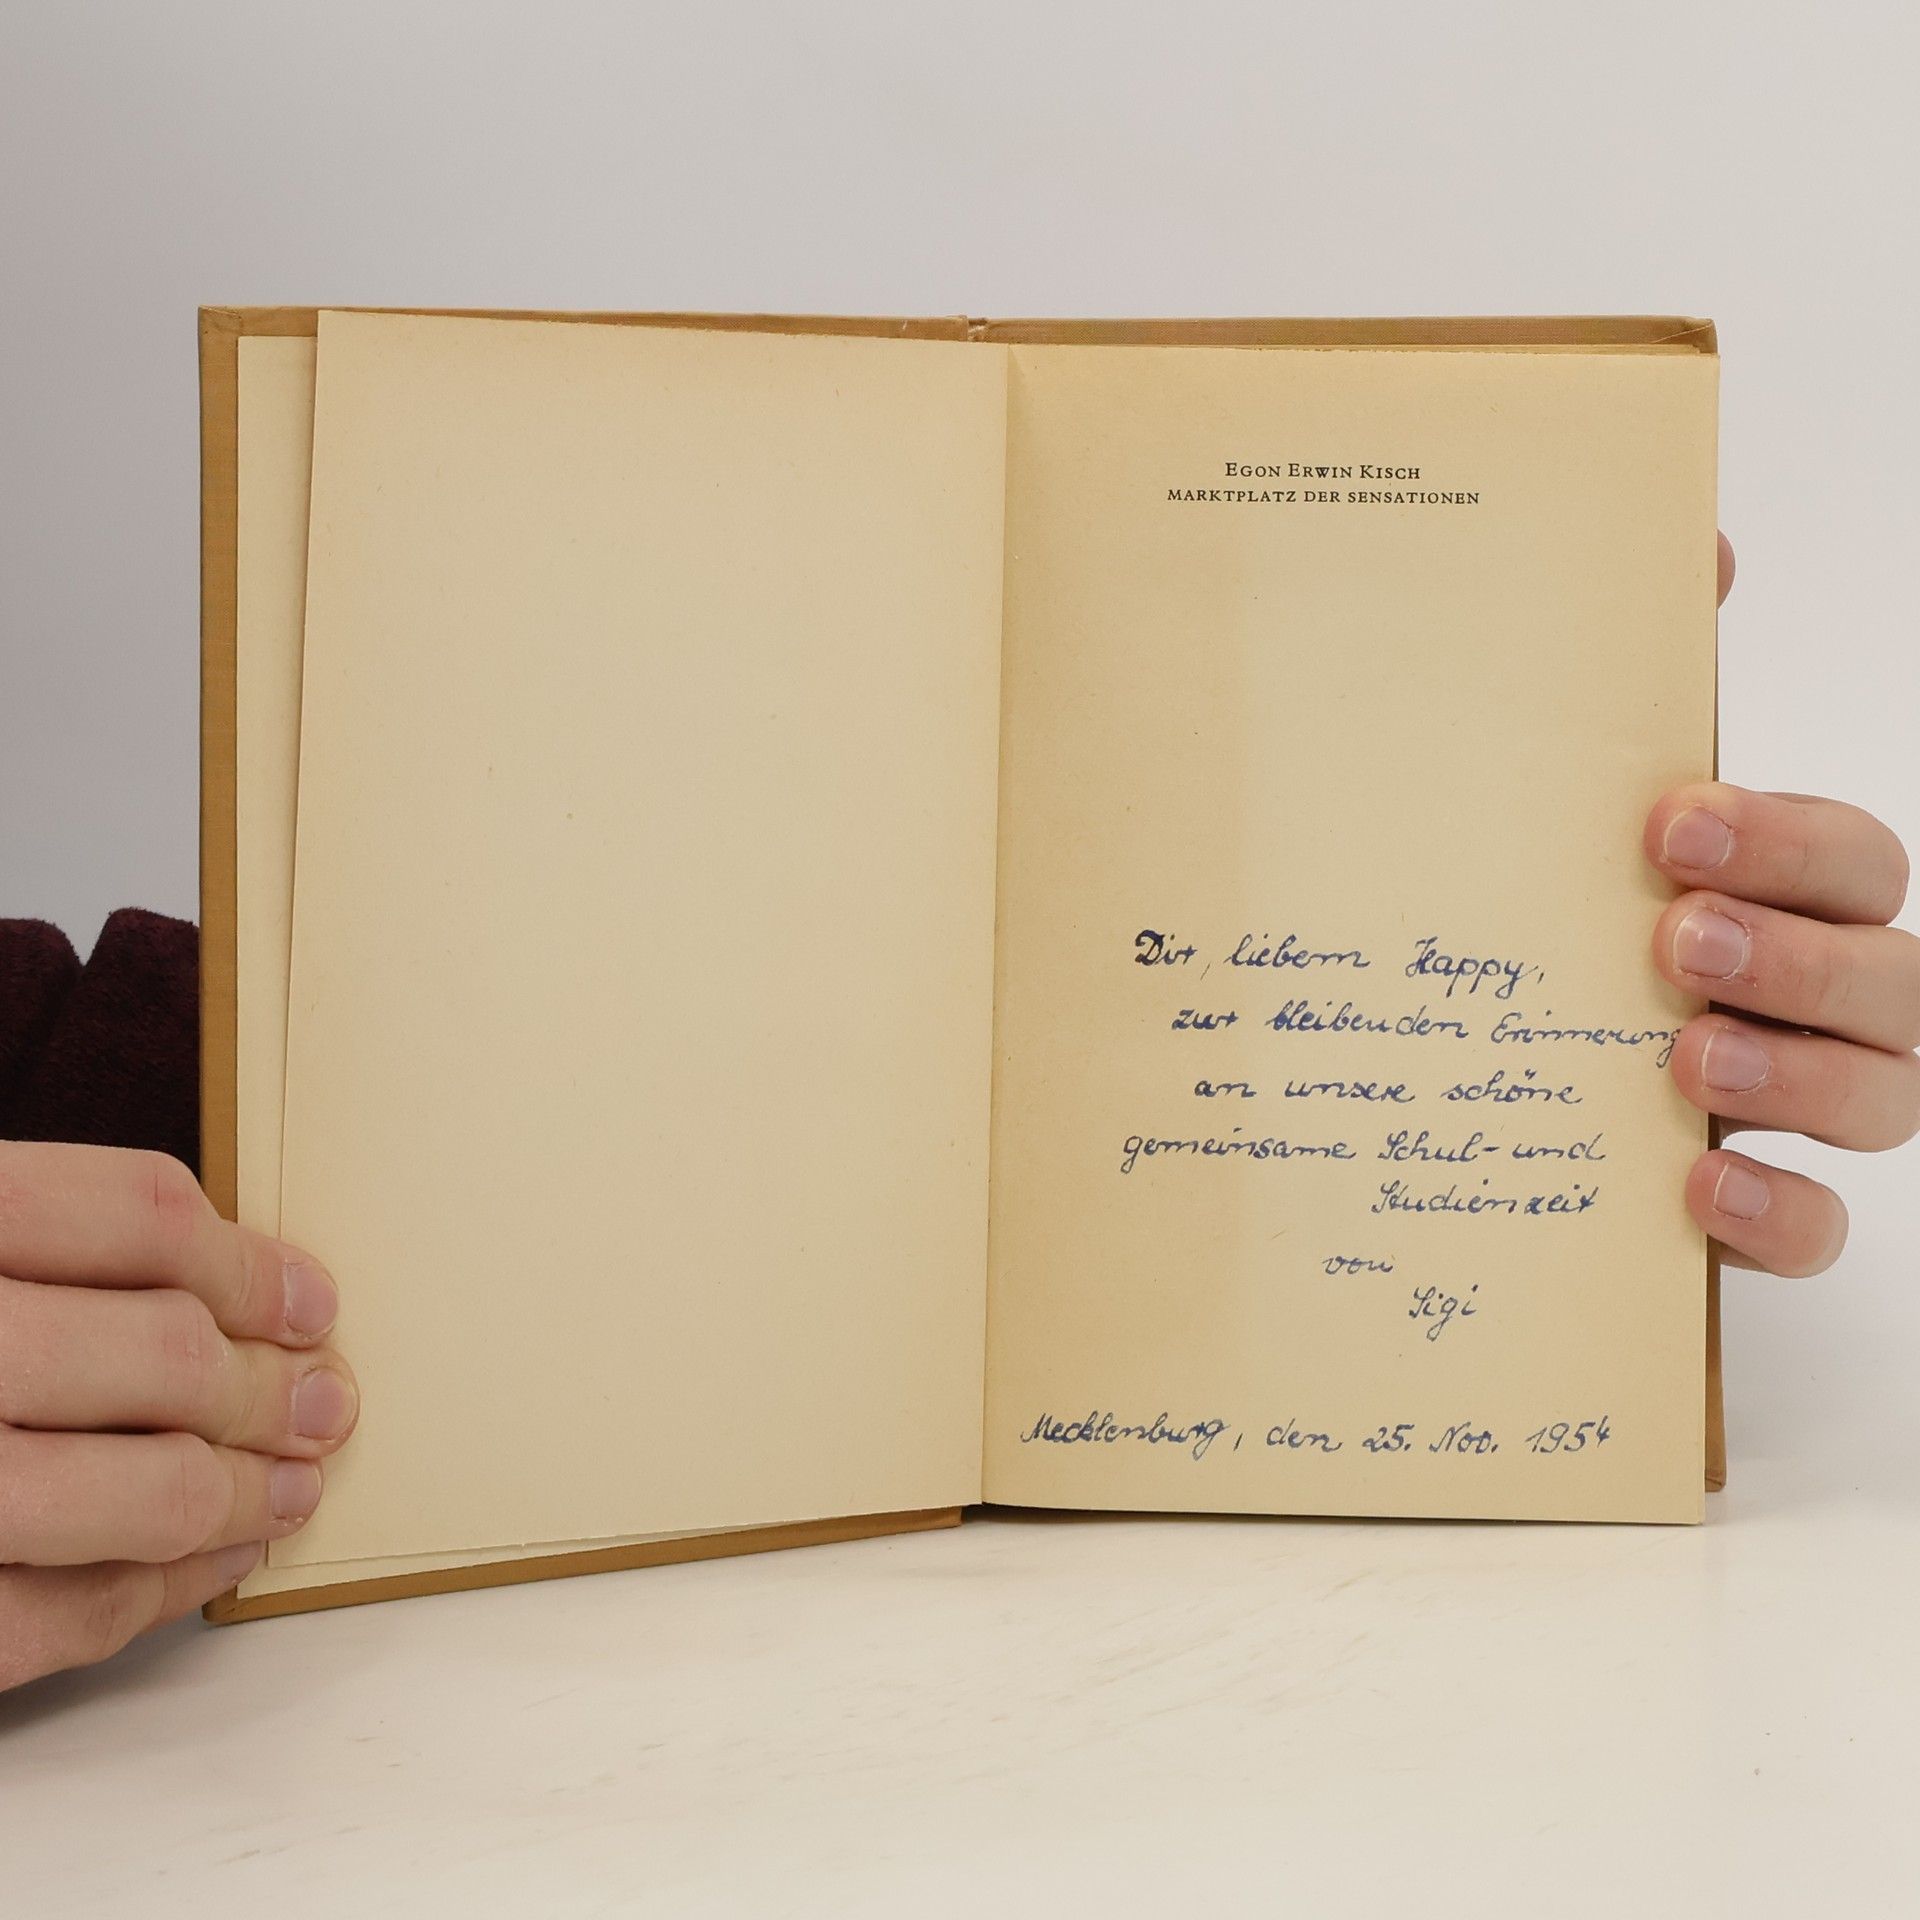 EGON ERWIN KISCH
MARKTPLATZ DER SENSATIONEN
Dir, liebem Happy,
zur bleibenden Erinnerung
an unsere schöne
gemeinsame Schul- und
Studienzeit
von
Sigi
Mecklenburg, den 25. Nov. 1954